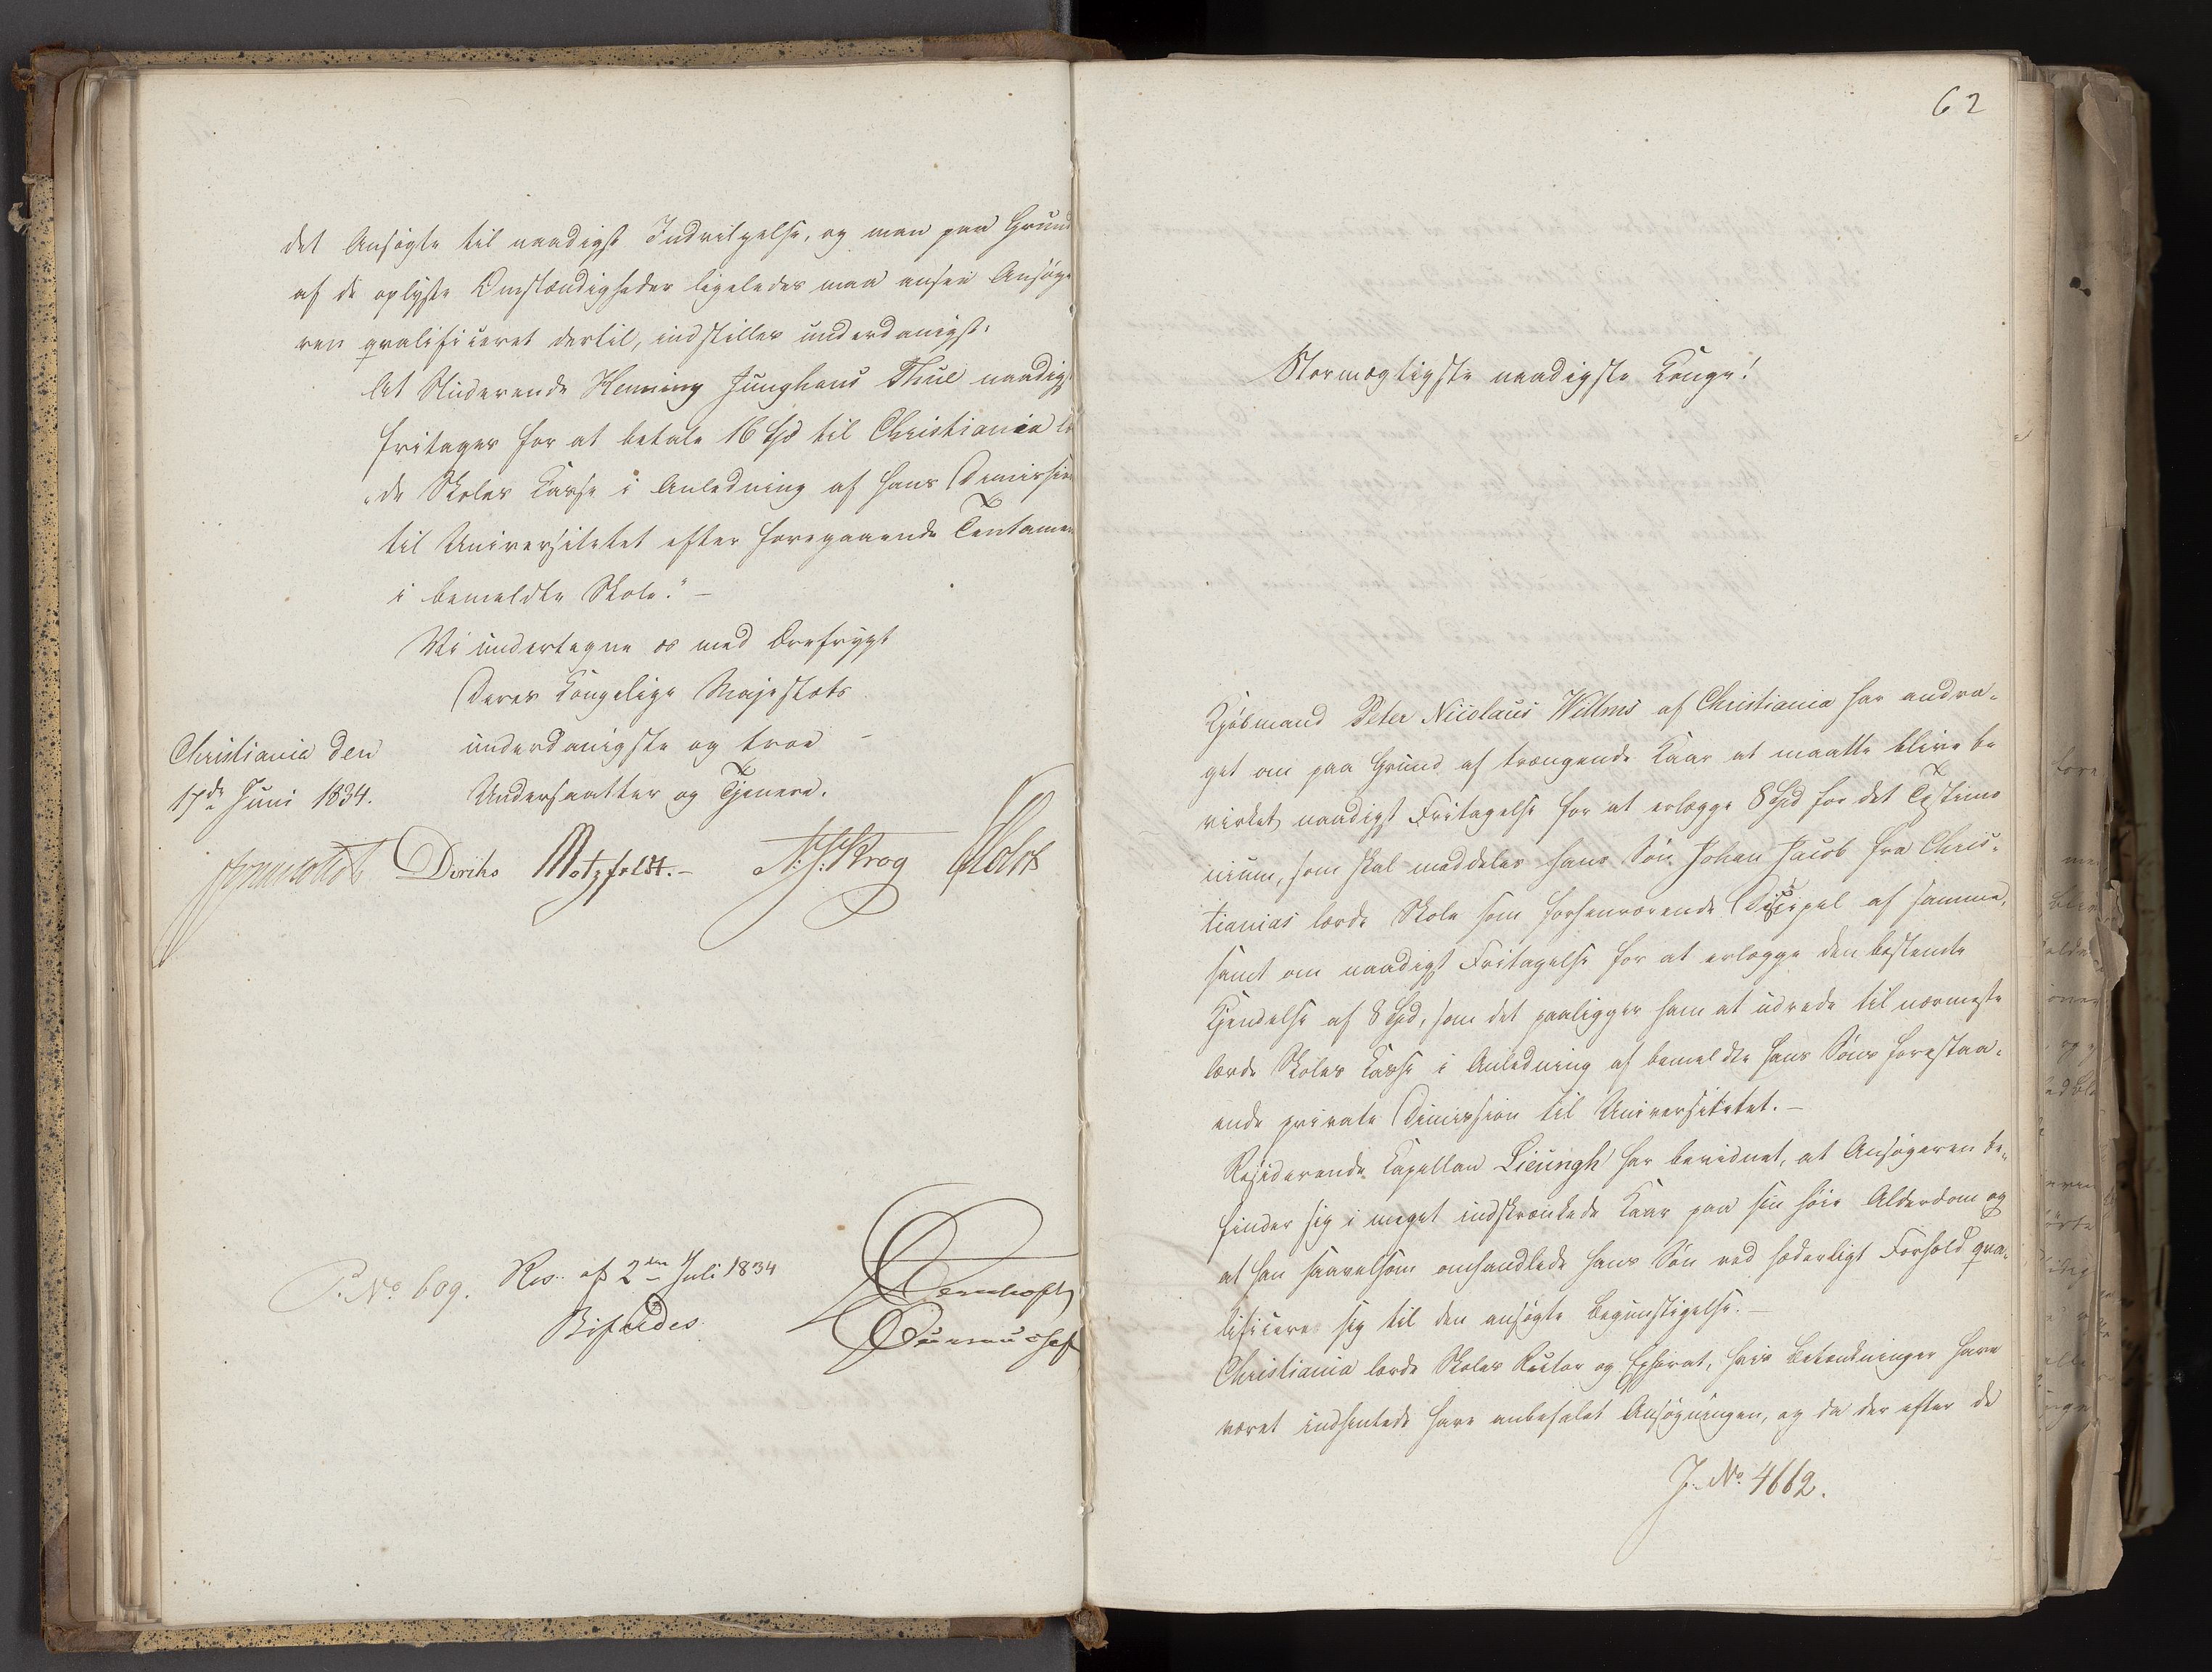 det Ansøgte til naadigst Indvilgelse, og man paa Grund
af de oplyste Omstændigheder ligeledes maa ansee Ansøge
ren qvalificeret dertil, indstilles underdanigst:
At Studerende Henning Junghans Thue naadigst
fritages for at betale 16 Spd til Christiania lær
de Skoles Kasse i Anledning af hans Dimission
til Universitetet efter foregaaende Tentamen
i bemeldte Skole." —
Vi undertegne os med Ærefrygt
Deres Kongelige Majestæts
underdanigste og troe –
Undersaatter og Tjenere.
Christiania den
17de Juni 1834.
Diriks Motzfeldt. – N. J. Krog Holst
P. No 609. Res. af 2den Juli 1834
Bifaldes
Duemus hof
62
Stormægtigste naadigste Konge!
Kjøbmand Peter Nicolaus Willms af Christiania har andra-
get om paa Grund af trængende Kaar at maatte blive be
virket naadigst Fritagelse for at erlægge 8 Spd for det Testimo
nium, som skal meddeles hans Søn Johan Jacob fra Chris-
tianias lærde Skole som forhenværende Discipel af samme,
samt om naadigst Fritagelse for at erlægge den bestemte
Kjendelse af 8 Spd, som det paaligger ham at udrede til nærmeste
lærde Skoles Kasse i Anledning af bemeldte hans Søns forestaa-
ende private Dimission til Universitetet. –
Residerende Kapellan Lieungh har bevidnet, at Ansøgeren be-
finder sig i meget indskrænkede Kaar paa sin høie Alderdom og
at han saavelsom omhandlede hans Søn ved hæderligt Forhold qva-
lificere sig til den ansøgte Begunstigelse. –
Christiania lærde Skoles Rector og Ephorat, hvis Betænkninger have
været indhentede have anbefalet Ansøgningen, og da der efter de
J. No 4662.